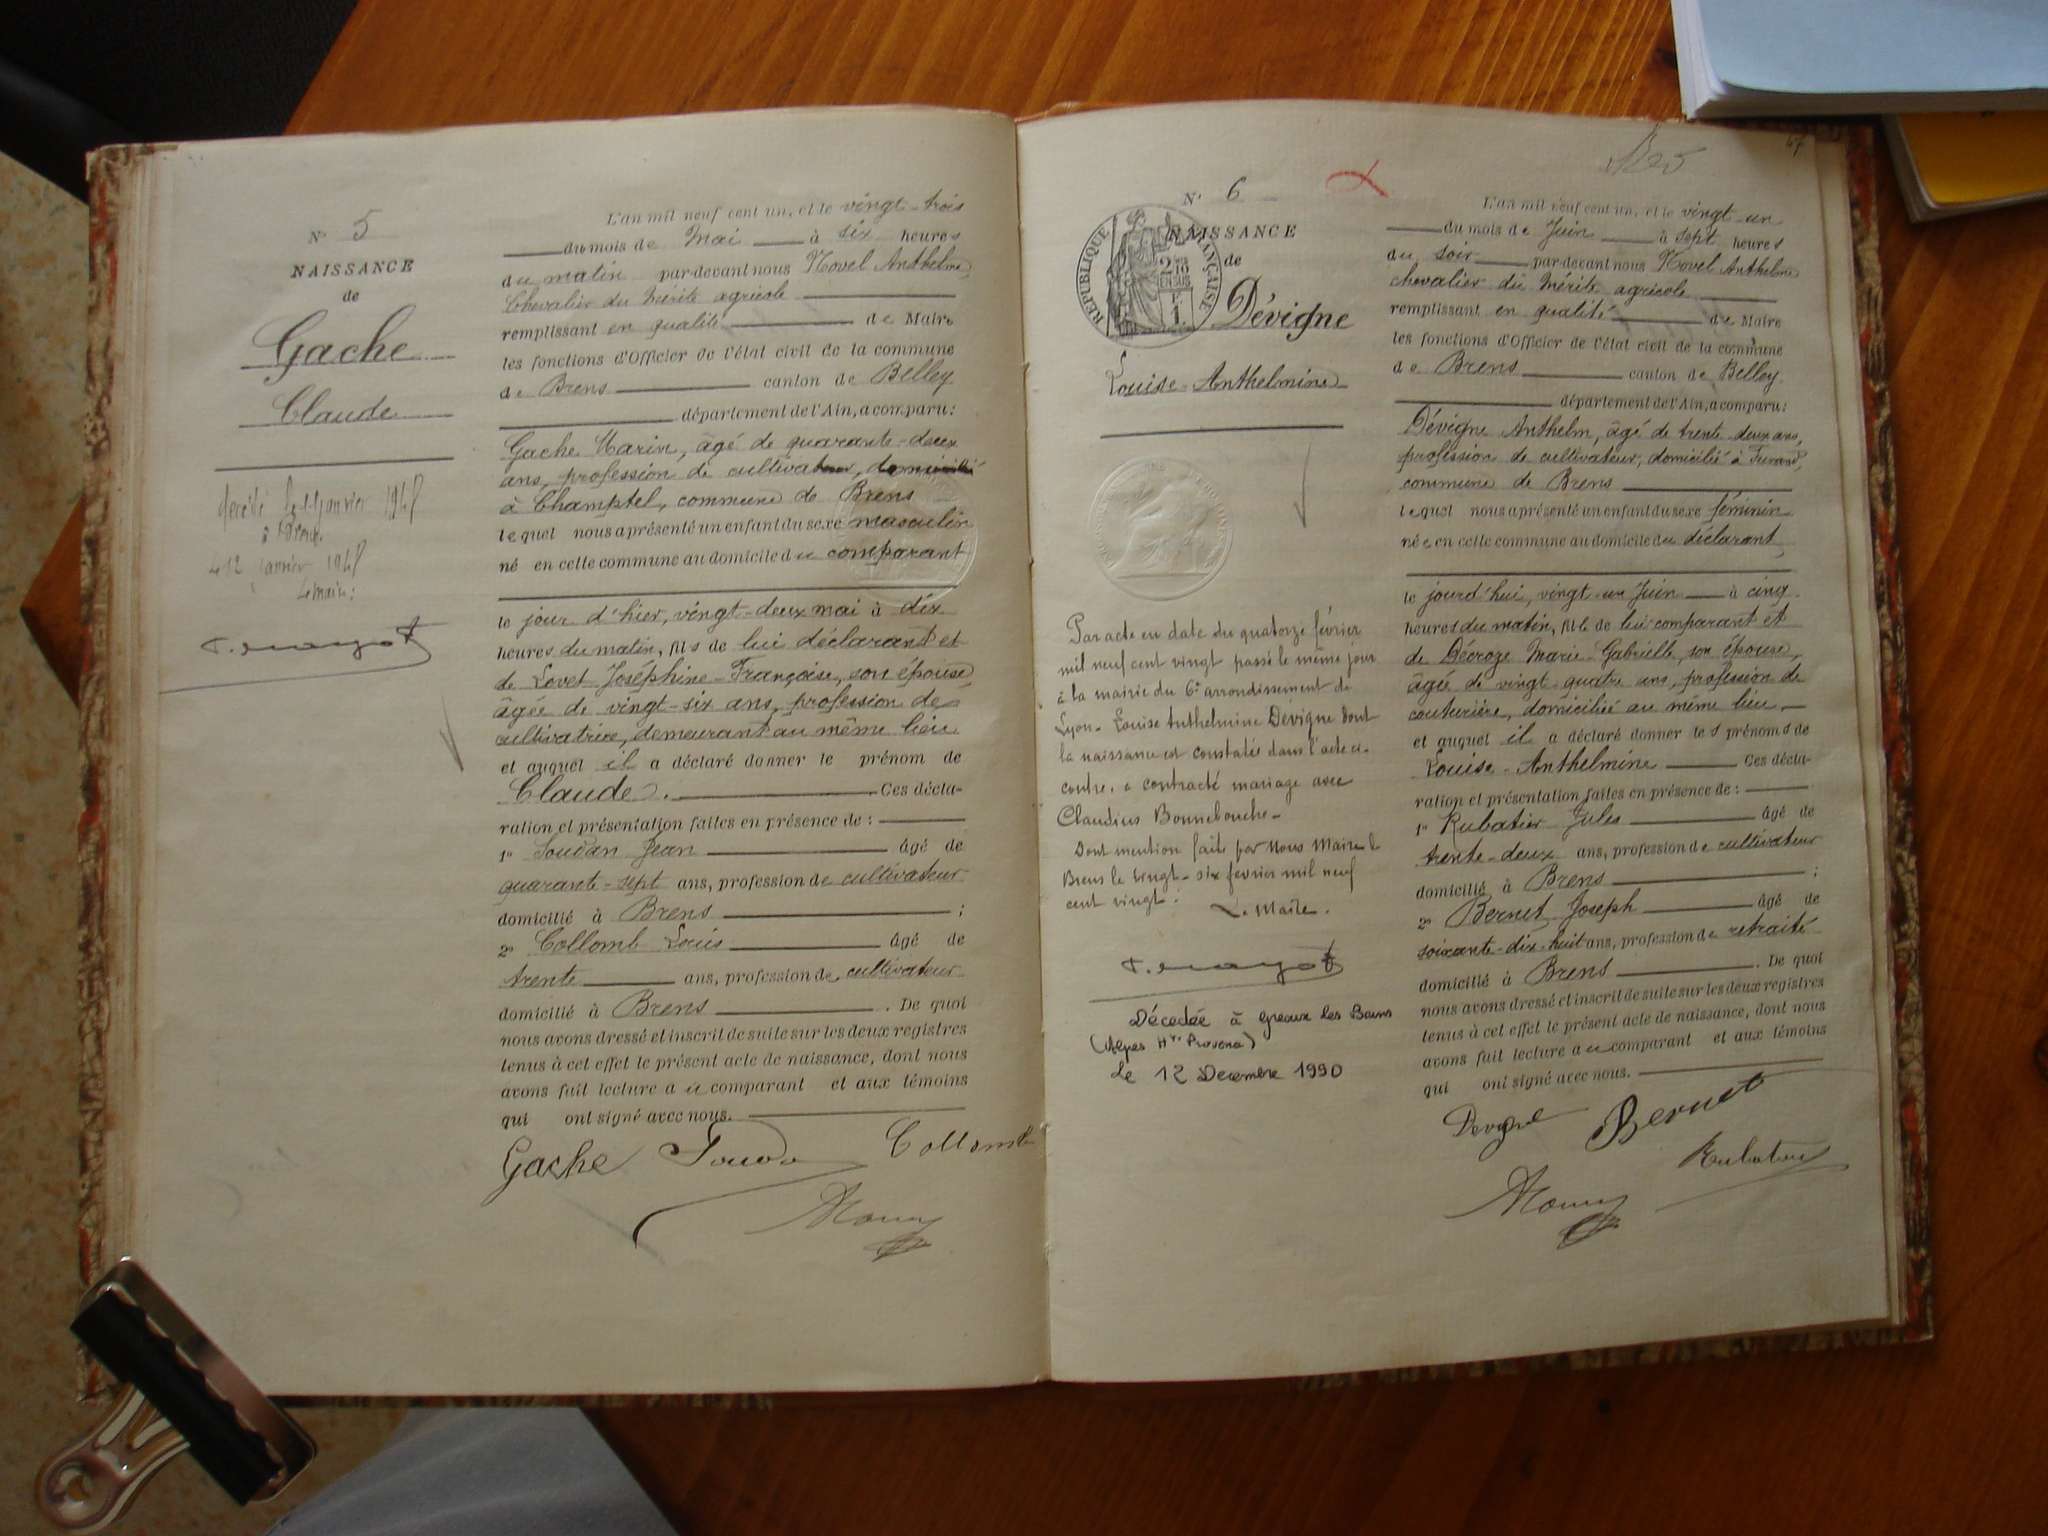 N° 5
NAISSANCE
de
Gache
Claude
décédé le janvier
à Brens
janvier
Le maire:
L'an mil neuf cent un, et le vingt-trois
du mois de Mai à six heures
du matin par-devant nous Novel Anthelme
Chevalier du Mérite agricole
remplissant en qualité de Maire
les fonctions d'Officier de l'état civil de la commune
de Brens canton de Belley
département de l'Ain, a comparu:
Gache Marin, âgé de quarante-deux
ans, profession de cultivateur, domicilié
à Champtel, commune de Brens
lequel nous a présenté un enfant du sexe masculin
né en cette commune au domicile du comparant
le jour d'hier, vingt-deux mai à dix
heures du matin, fils de lui déclarant et
de Lovet Joséphine-Françoise, son épouse
âgée de vingt-six ans, profession de
cultivatrice, demeurant au même lieu
et auquel il a déclaré donner le prénom de
Claude. Ces décla-
ration et présentation faites en présence de:
1° Soudan Jean âgé de
quarante-sept ans, profession de cultivateur
domicilié à Brens ;
2° Collomb Louis âgé de
trente ans, profession de cultivateur
domicilié à Brens . De quoi
nous avons dressé et inscrit de suite sur les deux registres
tenus à cet effet le présent acte de naissance, dont nous
avons fait lecture au comparant et aux témoins
qui ont signé avec nous.
Gache Collomb
47
N° 6
NAISSANCE
de
RÉPUBLIQUE FRANÇAISE
Dévigne
Louise-Anthelmine
Par acte en date du quatorze février
mil neuf cent vingt passé le même jour
à la mairie du 6e arrondissement de
Lyon- Louise Anthelmine Dévigne dont
la naissance est constatée dans l'acte ci-
contre, a contracté mariage avec
Claudius Bonnebouche-
Dont mention faite par Nous Maire de
Brens le vingt-six février mil neuf
cent vingt.
Le Maire.
Décédée à Greoux les Bains
(Alpes Hte Provence)
Le 12 Decembre 1990
L'an mil neuf cent un, et le vingt-un
du mois de Juin à sept heures
du soir par-devant nous Novel Anthelme
chevalier du Mérite agricole
remplissant en qualité de Maire
les fonctions d'Officier de l'état civil de la commune
de Brens canton de Belley
département de l'Ain, a comparu:
Dévigne Anthelm, âgé de trente deux ans,
profession de cultivateur, domicilié à
commune de Brens
lequel nous a présenté un enfant du sexe féminin
née en cette commune au domicile du déclarant
le jourd'hui, vingt-un Juin à cinq
heures du matin, fille de lui comparant et
de Décroze Marie-Gabrielle, son épouse,
âgée de vingt quatre ans, profession de
couturière, domiciliée au même lieu
et auquel il a déclaré donner les prénoms de
Louise-Anthelmine Ces décla-
ration et présentation faites en présence de:
1° Rubatier Jules âgé de
trente-deux ans, profession de cultivateur
domicilié à Brens ;
2° Bernet Joseph âgé de
soixante-dix-huit ans, profession de retraité
domicilié à Brens . De quoi
nous avons dressé et inscrit de suite sur les deux registres
tenus à cet effet le présent acte de naissance, dont nous
avons fait lecture au comparant et aux témoins
qui ont signé avec nous.
Devigne Bernet
Rubatier